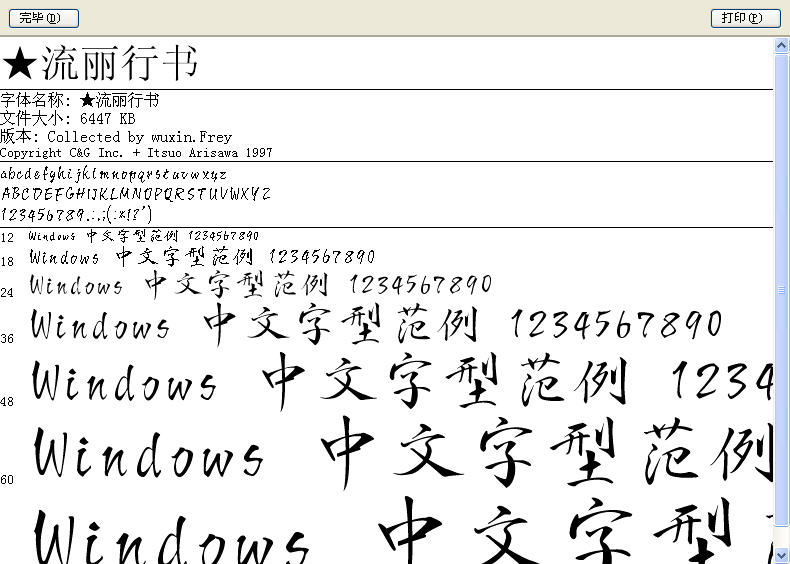 完毕(D) 打印(P)
★流丽行书
字体名称: ★流丽行书
文件大小: 6447 KB
版本: Collected by wuxin.Frey
Copyright C&G Inc. + Itsuo Arisawa 1997
abcdefghijklmnopqrstuvwxyz
ABCDEFGHIJKLMNOPQRSTUVWXYZ
123456789.:,;(:*!?')
12 Windows 中文字型范例 1234567890
18 Windows 中文字型范例 1234567890
24 Windows 中文字型范例 1234567890
36 Windows 中文字型范例 1234567890
48 Windows 中文字型范例 1234
60 Windows 中文字型范例
Windows 中文字型